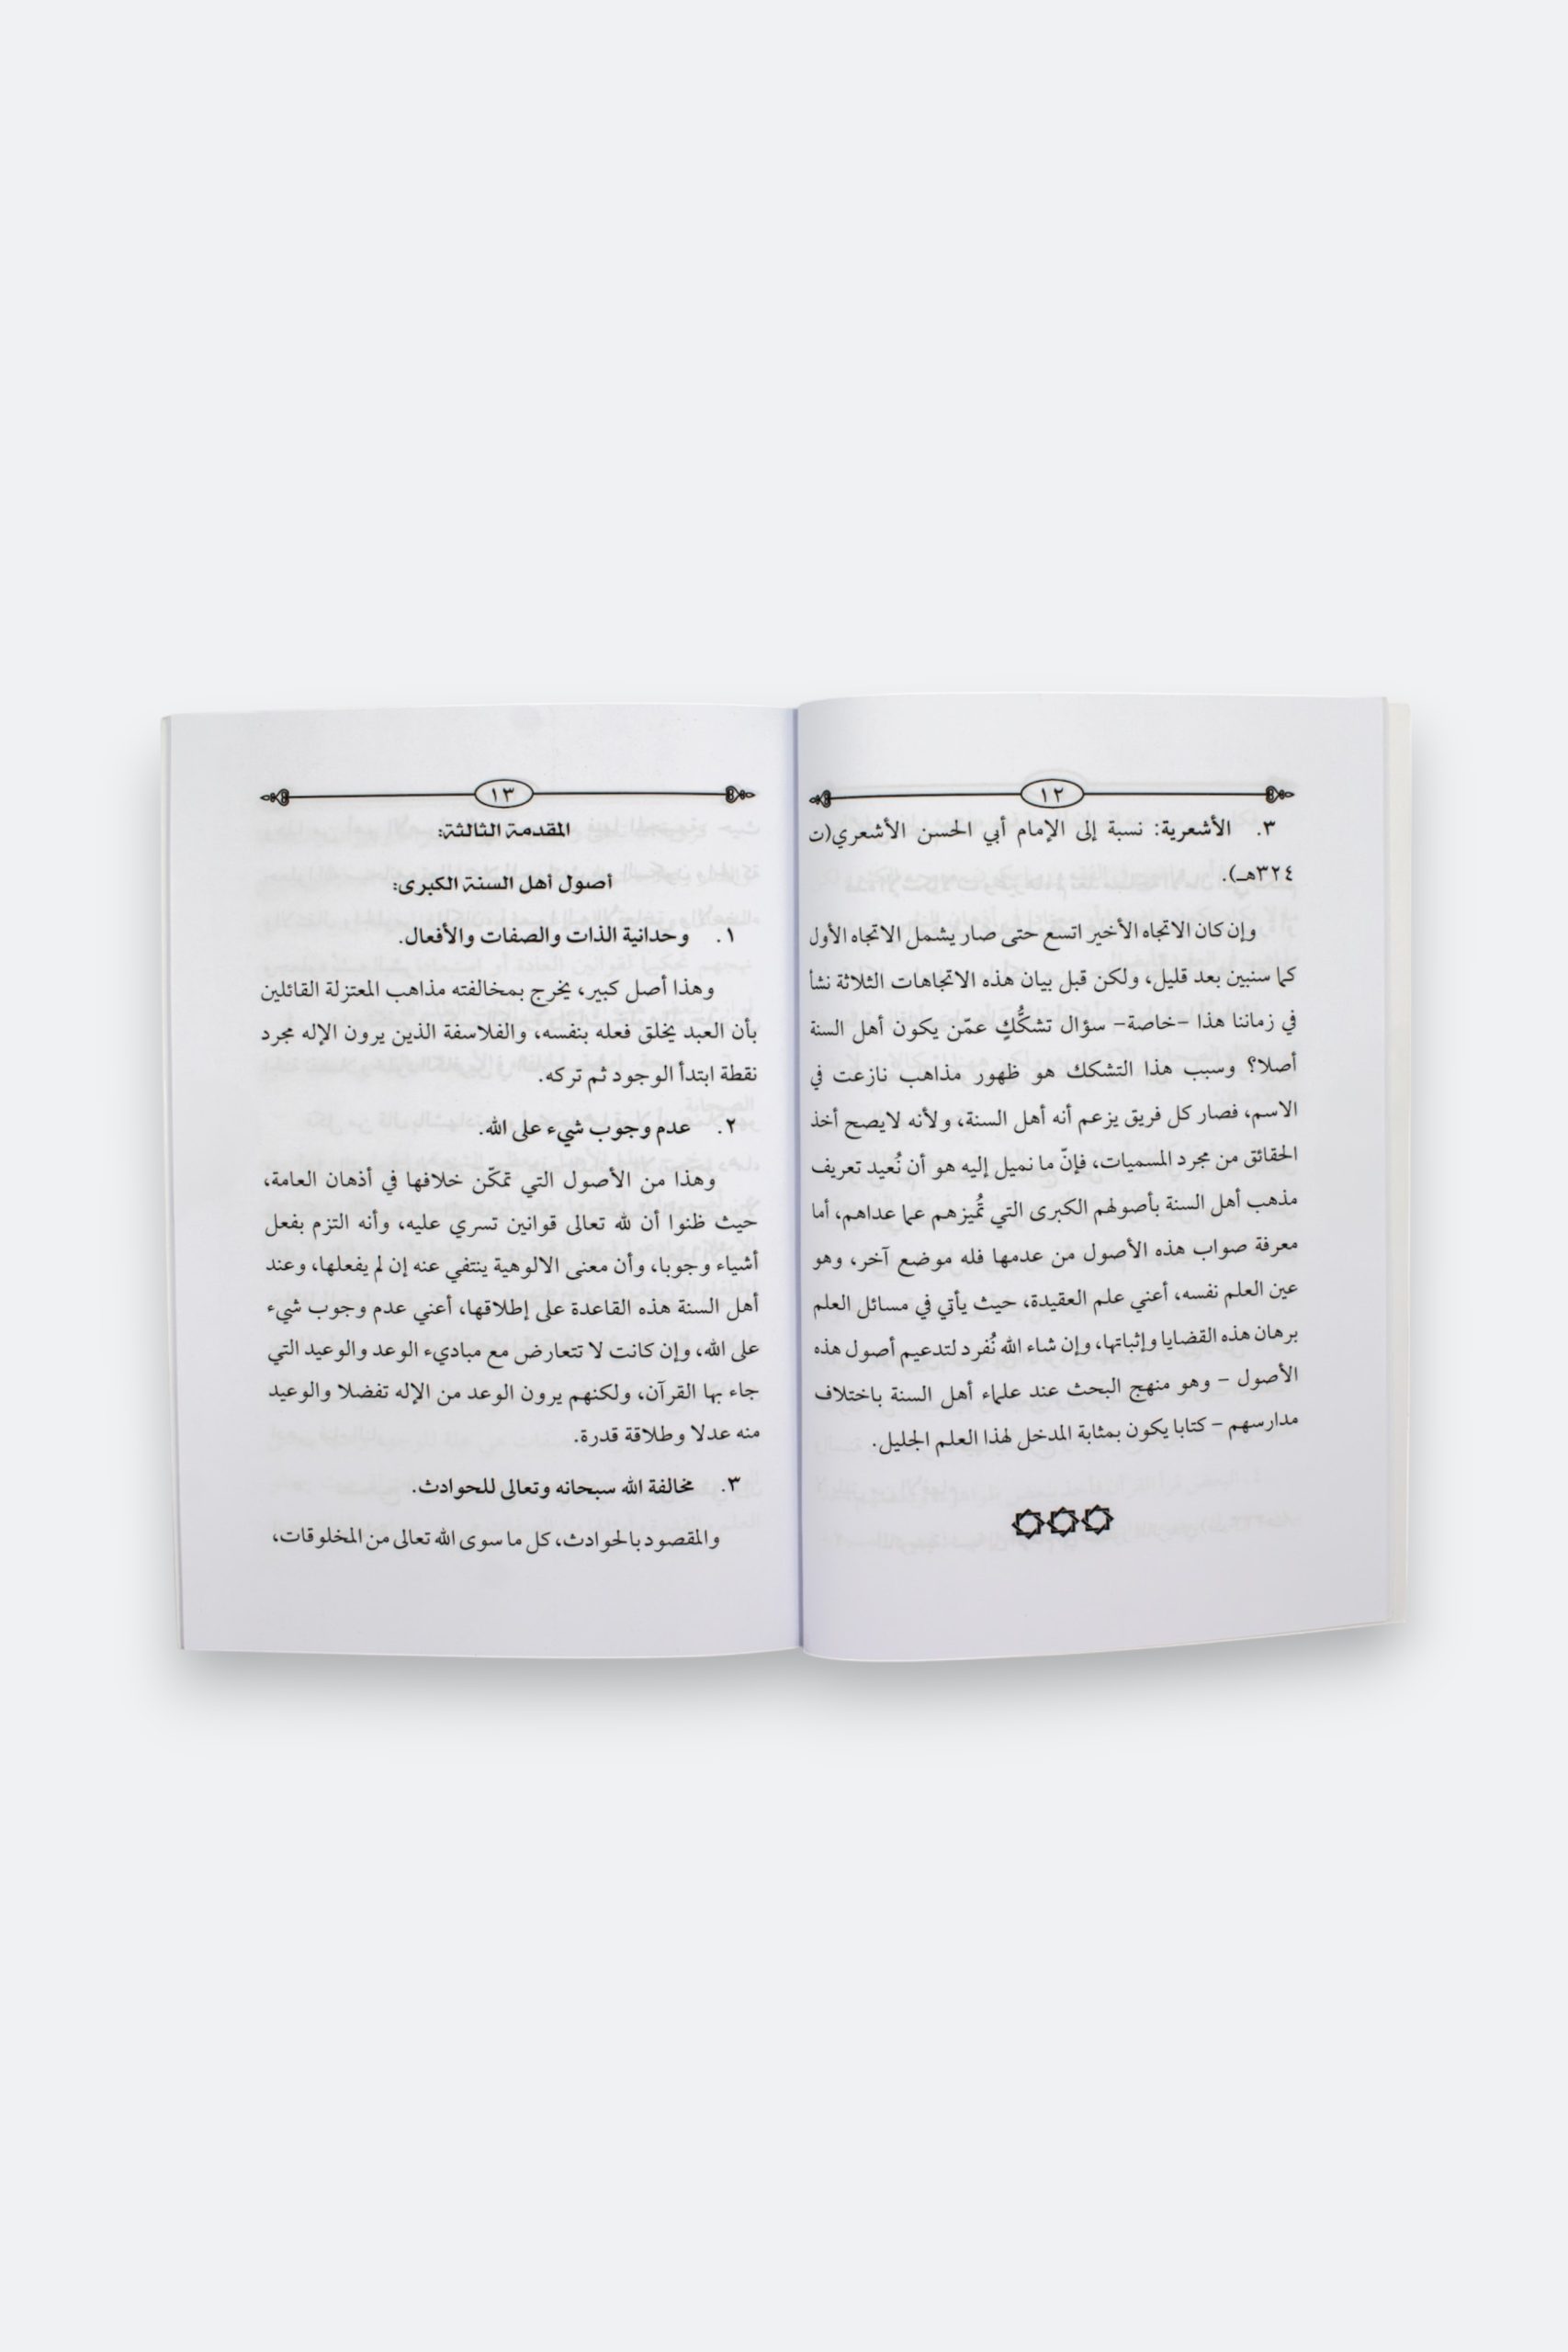 ١٢
٣. الأشعرية: نسبة إلى الإمام أبي الحسن الأشعري(ت
٣٢٤هـ).
وإن كان الاتجاه الأخير اتسع حتى صار يشمل الاتجاه الأول
كما سنبين بعد قليل، ولكن قبل بيان هذه الاتجاهات الثلاثة نشأ
في زماننا هذا -خاصة- سؤال تشكُّكٍ عمّن يكون أهل السنة
أصلا؟ وسبب هذا التشكك هو ظهور مذاهب نازعت في
الاسم، فصار كل فريق يزعم أنه أهل السنة، ولأنه لايصح أخذ
الحقائق من مجرد المسميات، فإنّ ما نميل إليه هو أن نُعيد تعريف
مذهب أهل السنة بأصولهم الكبرى التي تُميزهم عما عداهم، أما
معرفة صواب هذه الأصول من عدمها فله موضع آخر، وهو
عين العلم نفسه، أعني علم العقيدة، حيث يأتي في مسائل العلم
برهان هذه القضايا وإثباتها، وإن شاء الله نُفرد لتدعيم أصول هذه
الأصول – وهو منهج البحث عند علماء أهل السنة باختلاف
مدارسهم – كتابا يكون بمثابة المدخل لهذا العلم الجليل.
١٣
المقدمة الثالثة:
أصول أهل السنة الكبرى:
١. وحدانية الذات والصفات والأفعال.
وهذا أصل كبير، يخرج بمخالفته مذاهب المعتزلة القائلين
بأن العبد يخلق فعله بنفسه، والفلاسفة الذين يرون الإله مجرد
نقطة ابتدأ الوجود ثم تركه.
٢. عدم وجوب شيء على الله.
وهذا من الأصول التي تمكّن خلافها في أذهان العامة،
حيث ظنوا أن لله تعالى قوانين تسري عليه، وأنه التزم بفعل
أشياء وجوبا، وأن معنى الالوهية ينتفي عنه إن لم يفعلها، وعند
أهل السنة هذه القاعدة على إطلاقها، أعني عدم وجوب شيء
على الله، وإن كانت لا تتعارض مع مباديء الوعد والوعيد التي
جاء بها القرآن، ولكنهم يرون الوعد من الإله تفضلا والوعيد
منه عدلا وطلاقة قدرة.
٣. مخالفة الله سبحانه وتعالى للحوادث.
والمقصود بالحوادث، كل ما سوى الله تعالى من المخلوقات،